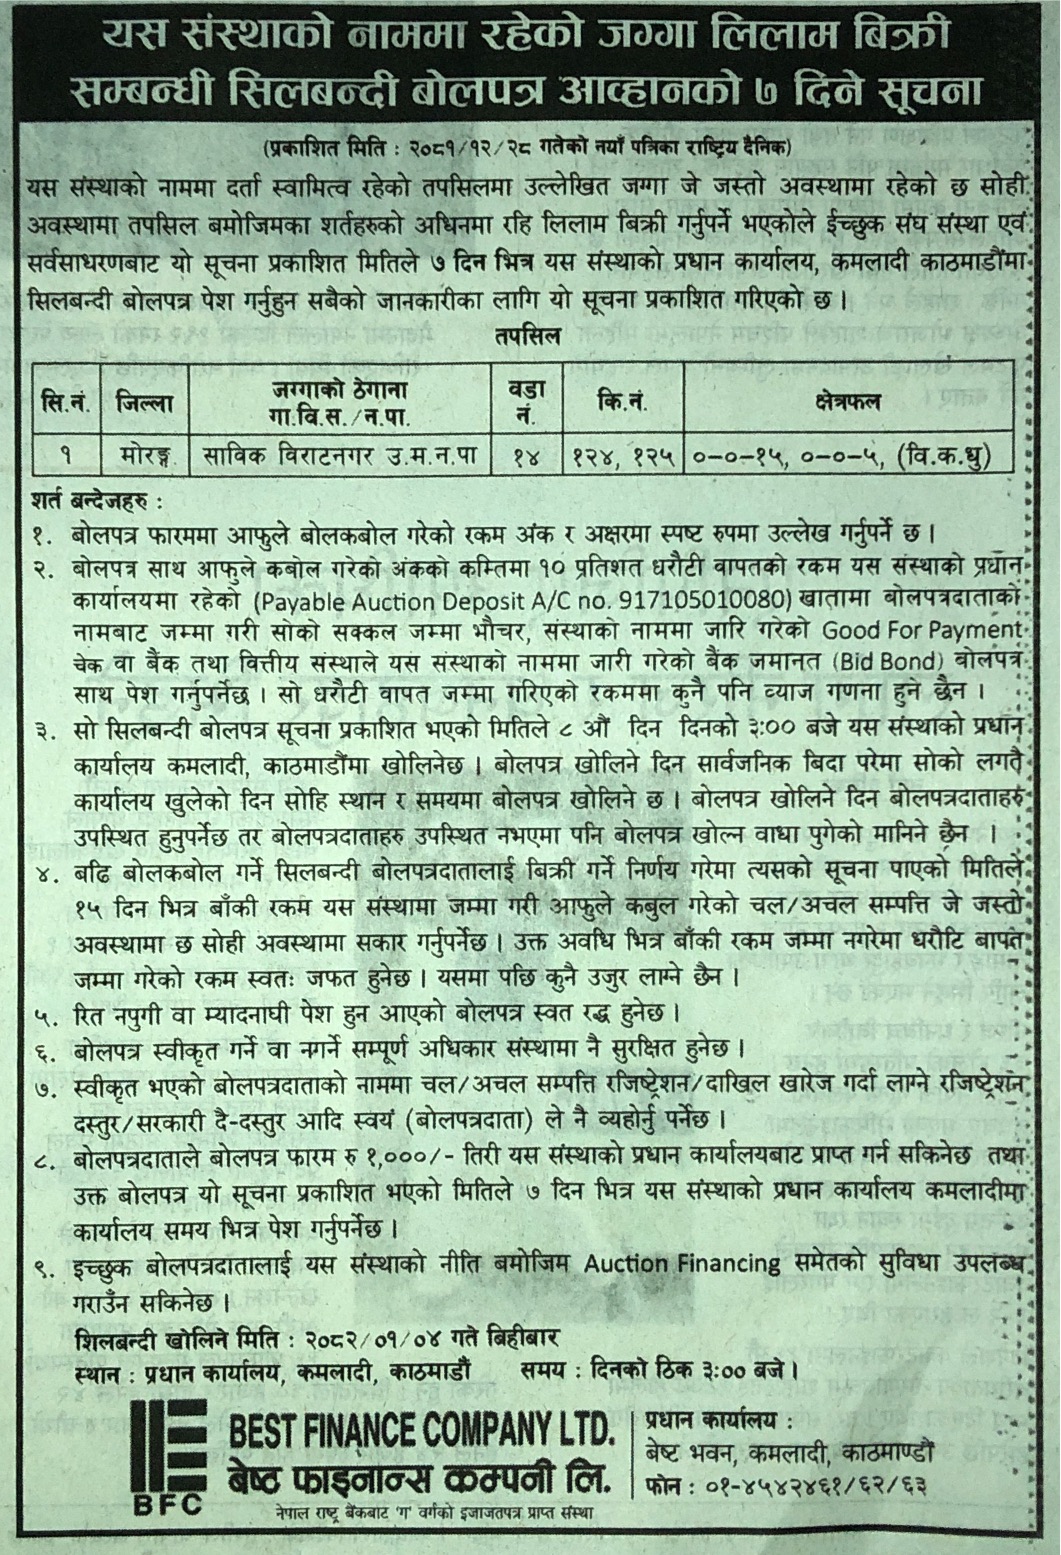 यस संस्थाको नाममा रहेको जग्गा लिलाम बिक्री
सम्बन्धी सिलबन्दी बोलपत्र आव्हानको ७ दिने सूचना
(प्रकाशित मिति : २०८१/१२/२८ गतेको नयाँ पत्रिका राष्ट्रिय दैनिक)
यस संस्थाको नाममा दर्ता स्वामित्व रहेको तपसिलमा उल्लेखित जग्गा जे जस्तो अवस्थामा रहेको छ सोही
अवस्थामा तपसिल बमोजिमका शर्तहरुको अधिनमा रहि लिलाम बिक्री गर्नुपर्ने भएकोले ईच्छुक संघ संस्था एवं
सर्वसाधरणबाट यो सूचना प्रकाशित मितिले ७ दिन भित्र यस संस्थाको प्रधान कार्यालय, कमलादी काठमाडौंमा
सिलबन्दी बोलपत्र पेश गर्नुहुन सबैको जानकारीका लागि यो सूचना प्रकाशित गरिएको छ ।
तपसिल
सि.नं. जिल्ला जग्गाको ठेगाना गा.वि.स./न.पा. वडा नं. कि.नं. क्षेत्रफल
१ मोरङ्ग साविक विराटनगर उ.म.न.पा १४ १२४, १२५ ०-०-१५, ०-०-५, (वि.क.धु)
शर्त बन्देजहरु :
१. बोलपत्र फारममा आफुले बोलकबोल गरेको रकम अंक र अक्षरमा स्पष्ट रुपमा उल्लेख गर्नुपर्ने छ ।
२. बोलपत्र साथ आफुले कबोल गरेको अंकको कम्तिमा १० प्रतिशत धरौटी वापतको रकम यस संस्थाको प्रधान
कार्यालयमा रहेको (Payable Auction Deposit A/C no. 917105010080) खातामा बोलपत्रदाताको
नामबाट जम्मा गरी सोको सक्कल जम्मा भौचर, संस्थाको नाममा जारि गरेको Good For Payment
चेक वा बैंक तथा वित्तीय संस्थाले यस संस्थाको नाममा जारी गरेको बैंक जमानत (Bid Bond) बोलपत्र
साथ पेश गर्नुपर्नेछ । सो धरौटी वापत जम्मा गरिएको रकममा कुनै पनि व्याज गणना हुने छैन ।
३. सो सिलबन्दी बोलपत्र सूचना प्रकाशित भएको मितिले ८ औं दिन दिनको ३:०० बजे यस संस्थाको प्रधान
कार्यालय कमलादी, काठमाडौंमा खोलिनेछ । बोलपत्र खोलिने दिन सार्वजनिक बिदा परेमा सोको लगत्तै
कार्यालय खुलेको दिन सोहि स्थान र समयमा बोलपत्र खोलिने छ । बोलपत्र खोलिने दिन बोलपत्रदाताहरु
उपस्थित हुनुपर्नेछ तर बोलपत्रदाताहरु उपस्थित नभएमा पनि बोलपत्र खोल्न वाधा पुगेको मानिने छैन ।
४. बढि बोलकबोल गर्ने सिलबन्दी बोलपत्रदातालाई बिक्री गर्ने निर्णय गरेमा त्यसको सूचना पाएको मितिले
१५ दिन भित्र बाँकी रकम यस संस्थामा जम्मा गरी आफुले कबुल गरेको चल/अचल सम्पत्ति जे जस्तो
अवस्थामा छ सोही अवस्थामा सकार गर्नुपर्नेछ । उक्त अवधि भित्र बाँकी रकम जम्मा नगरेमा धरौटि बापत
जम्मा गरेको रकम स्वतः जफत हुनेछ । यसमा पछि कुनै उजुर लाग्ने छैन ।
५. रित नपुगी वा म्यादनाघी पेश हुन आएको बोलपत्र स्वत रद्ध हुनेछ ।
६. बोलपत्र स्वीकृत गर्ने वा नगर्ने सम्पूर्ण अधिकार संस्थामा नै सुरक्षित हुनेछ ।
७. स्वीकृत भएको बोलपत्रदाताको नाममा चल/अचल सम्पत्ति रजिष्ट्रेशन/दाखिल खारेज गर्दा लाग्ने रजिष्ट्रेशन
दस्तुर/सरकारी दै-दस्तुर आदि स्वयं (बोलपत्रदाता) ले नै व्यहोर्नु पर्नेछ ।
८. बोलपत्रदाताले बोलपत्र फारम रु १,०००/- तिरी यस संस्थाको प्रधान कार्यालयबाट प्राप्त गर्न सकिनेछ तथा
उक्त बोलपत्र यो सूचना प्रकाशित भएको मितिले ७ दिन भित्र यस संस्थाको प्रधान कार्यालय कमलादीमा
कार्यालय समय भित्र पेश गर्नुपर्नेछ ।
९. इच्छुक बोलपत्रदातालाई यस संस्थाको नीति बमोजिम Auction Financing समेतको सुविधा उपलब्ध
गराउँन सकिनेछ ।
शिलबन्दी खोलिने मिति : २०८२/०१/०४ गते बिहीबार
स्थान : प्रधान कार्यालय, कमलादी, काठमाडौं समय : दिनको ठिक ३:०० बजे ।
BFC
BEST FINANCE COMPANY LTD.
बेष्ट फाइनान्स कम्पनी लि.
नेपाल राष्ट्र बैंकबाट 'ग' वर्गको इजाजतपत्र प्राप्त संस्था
प्रधान कार्यालय :
बेष्ट भवन, कमलादी, काठमाण्डौं
फोन : ०१-४५४२४६१/६२/६३